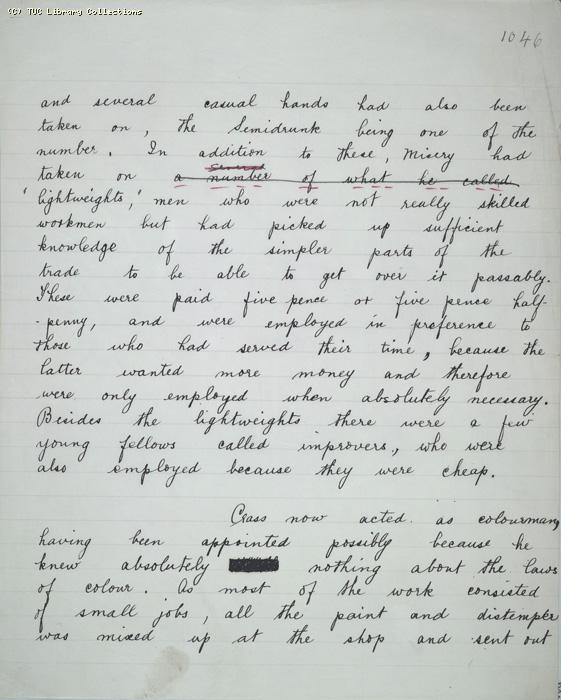 (C) TUC Library Collections
1046
and several casual hands had also been
taken on, the Semidrunk being one of the
number. In addition to these, Misery had
several
taken on a number of what he called
'lightweights,' men who were not really skilled
workmen but had picked up sufficient
knowledge of the simpler parts of the
trade to be able to get over it passably.
These were paid five pence or five pence half-
-penny, and were employed in preference to
those who had served their time, because the
latter wanted more money and therefore
were only employed when absolutely necessary.
Besides the lightweights there were a few
young fellows called improvers, who were
also employed because they were cheap.
Crass now acted as colourman,
having been appointed possibly because he
knew absolutely nothing about the laws
of colour. As most of the work consisted
of small jobs, all the paint and distemper
was mixed up at the shop and sent out